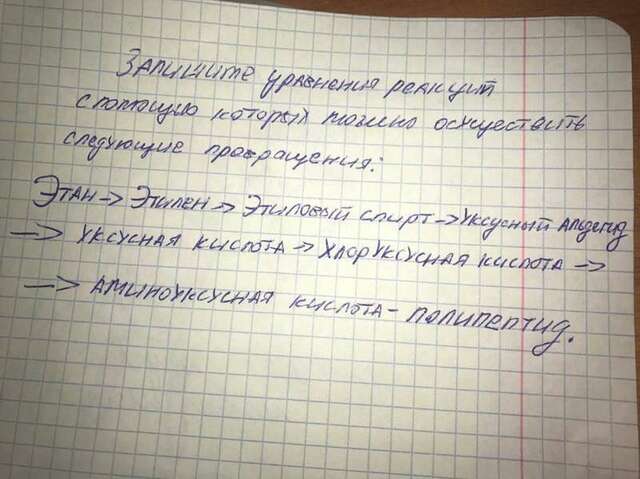 Запишите уравнения реакций
с помощью которых можно осуществить
следующие превращения:
Этан → Этилен → Этиловый спирт → Уксусный альдегид
→ Уксусная кислота → Хлоруксусная кислота →
→ Аминоуксусная кислота - полипептид.